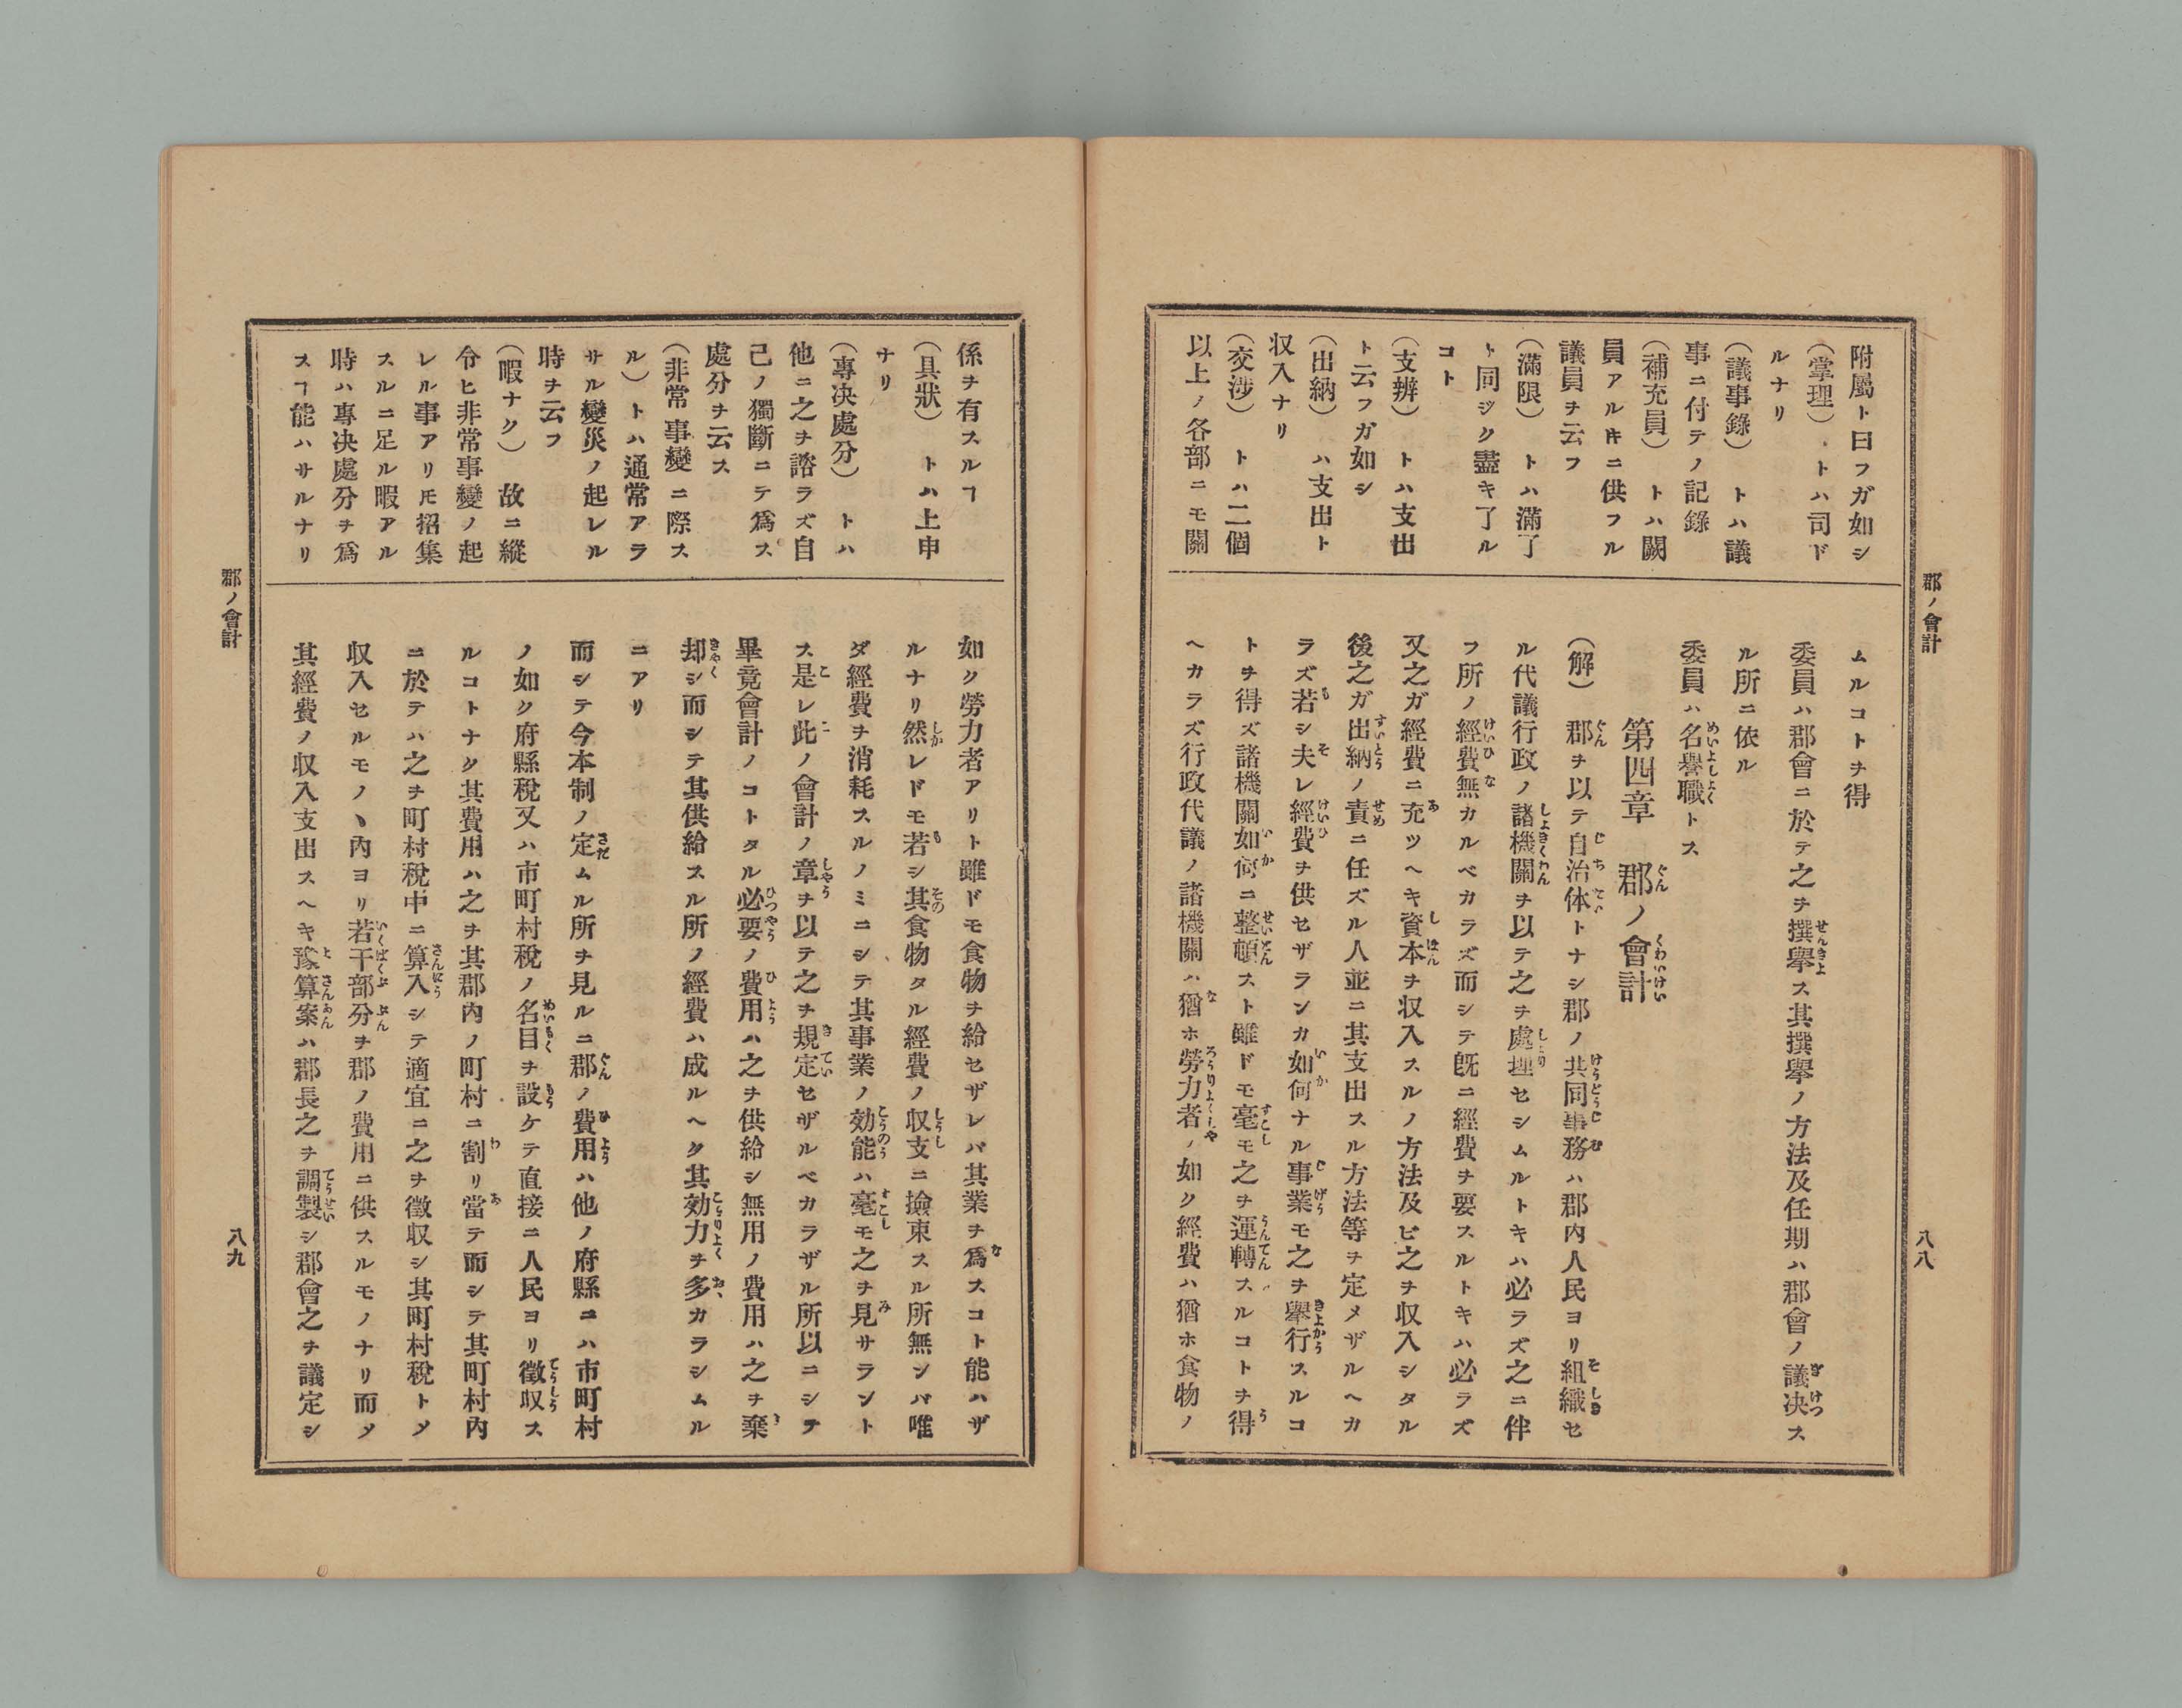 郡ノ會計
八八
附屬ト曰フガ如シ
（掌理）トハ司ド
ルナリ
（議事錄）トハ議
事ニ付テノ記錄
（補充員）トハ闕
員アル𪜈ニ供フル
議員ヲ云フ
（滿限）トハ滿了
ト同ジク盡キ了ル
コト
（支辨）トハ支出
ト云フガ如シ
（出納）ハ支出ト
収入ナリ
（交渉）トハ二個
以上ノ各部ニモ關
ムルコトヲ得
委員ハ郡會ニ於テ之ヲ撰擧ス其撰擧ノ方法及任期ハ郡會ノ議决ス
ル所ニ依ル
委員ハ名譽職トス
第四章　郡ノ會計
（解）郡ヲ以テ自治体トナシ郡ノ共同事務ハ郡内人民ヨリ組織セ
ル代議行政ノ諸機關ヲ以テ之ヲ處理セシムルトキハ必ラズ之ニ伴
フ所ノ經費無カルベカラズ而シテ既ニ經費ヲ要スルトキハ必ラズ
又之ガ經費ニ充ツヘキ資本ヲ収入スルノ方法及ビ之ヲ収入シタル
後之ガ出納ノ責ニ任ズル人並ニ其支出スル方法等ヲ定メザルヘカ
ラズ若シ夫レ經費ヲ供セザランカ如何ナル事業モ之ヲ擧行スルコ
トヲ得ズ諸機關如何ニ整頓スト雖ドモ毫モ之ヲ運轉スルコトヲ得
ヘカラズ行政代議ノ諸機關ハ猶ホ勞力者ノ如ク經費ハ猶ホ食物ノ
係ヲ有スルヿ
（具狀）トハ上申
ナリ
（專决處分）トハ
他ニ之ヲ諮ラズ自
己ノ獨斷ニテ爲ス
處分ヲ云ス
（非常事變ニ際ス
ル）トハ通常アラ
サル變災ノ起レル
時ヲ云フ
（暇ナク）故ニ縱
令ヒ非常事變ノ起
レル事アリ𪜈招集
スルニ足ル暇アル
時ハ專决處分ヲ爲
スヿ能ハサルナリ
如ク勞力者アリト雖ドモ食物ヲ給セザレバ其業ヲ爲スコト能ハザ
ルナリ然レドモ若シ其食物タル經費ノ収支ニ撿束スル所無ンバ唯
ダ經費ヲ消耗スルノミニシテ其事業ノ効能ハ毫モ之ヲ見サラント
ス是レ此ノ會計ノ章ヲ以テ之ヲ規定セザルベカラザル所以ニシテ
畢竟會計ノコトタル必要ノ費用ハ之ヲ供給シ無用ノ費用ハ之ヲ棄
却シ而シテ其供給スル所ノ經費ハ成ルヘク其効力ヲ多カラシムル
ニアリ
而シテ今本制ノ定ムル所ヲ見ルニ郡ノ費用ハ他ノ府縣ニハ市町村
ノ如ク府縣稅又ハ市町村稅ノ名目ヲ設ケテ直接ニ人民ヨリ徵収ス
ルコトナク其費用ハ之ヲ其郡内ノ町村ニ割リ當テ而シテ其町村内
ニ於テハ之ヲ町村稅中ニ算入シテ適宜ニ之ヲ徵収シ其町村稅トメ
収入セルモノヽ內ヨリ若干部分ヲ郡ノ費用ニ供スルモノナリ而メ
其經費ノ収入支出スヘキ豫算案ハ郡長之ヲ調製シ郡會之ヲ議定シ
郡ノ會計
八九